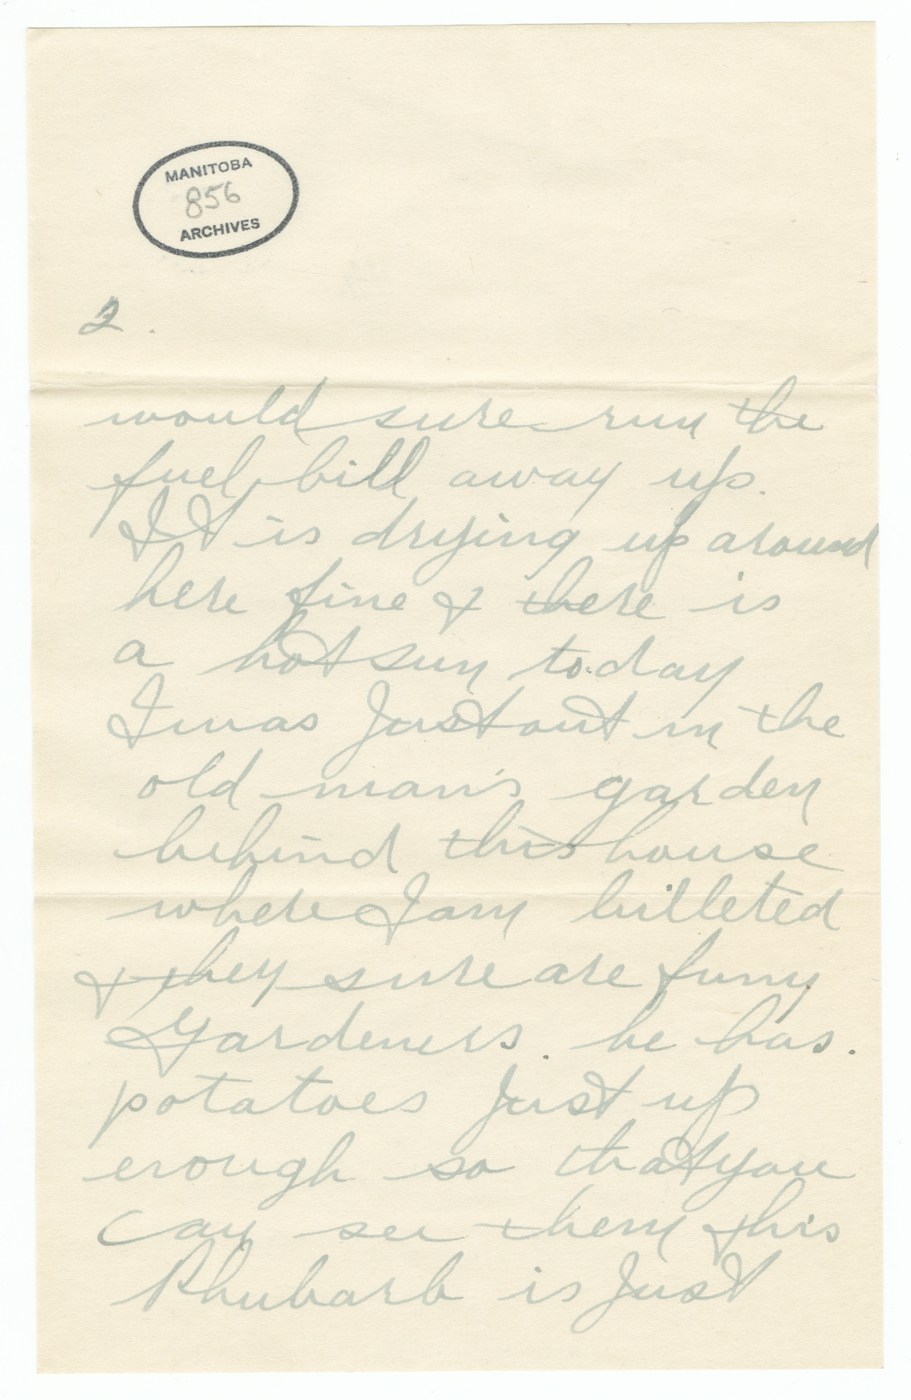 MANITOBA
856
ARCHIVES
2.
would sure run the
fuel bill away up.
It is drying up around
here fine & there is
a hot sun to.day
I was Just out in the
old man's garden
behind this house
where I am billeted
& they sure are funny
Gardeners. he has.
potatoes Just up
enough so that you
can see them & his
Rhubarb is Just